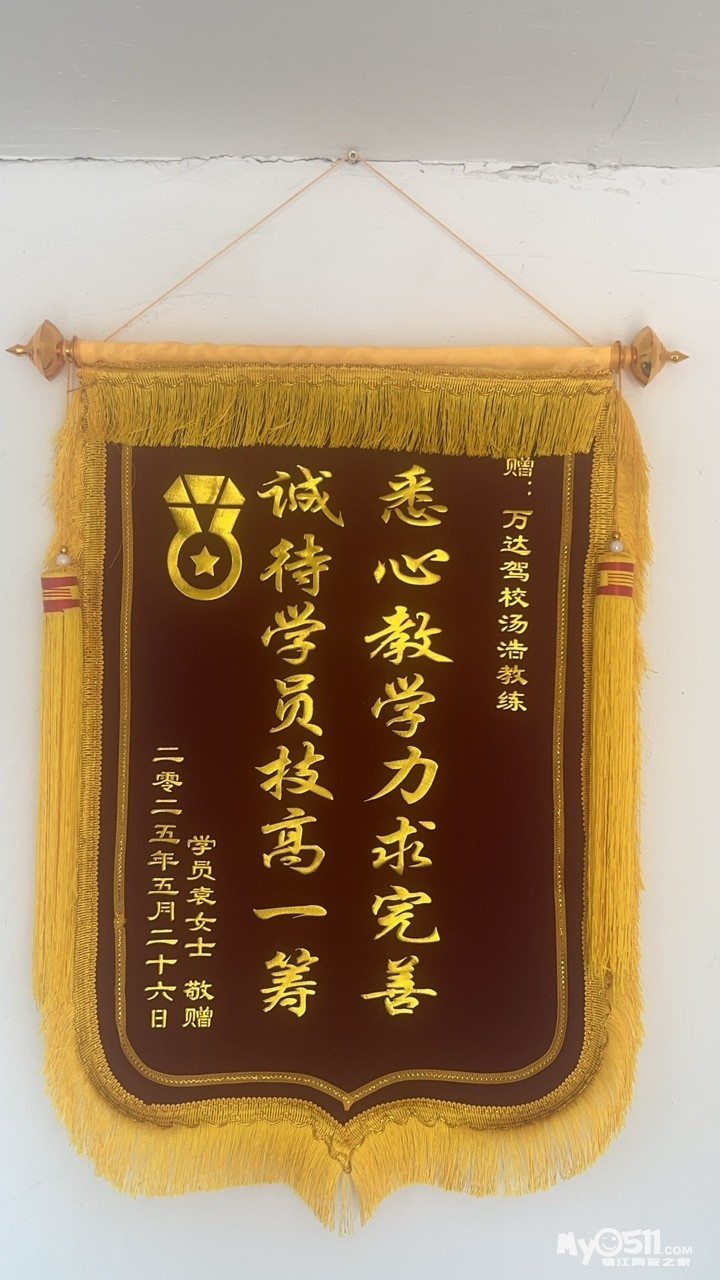 赠：万达驾校汤浩教练
悉心教学力求完善
诚待学员技高一筹
学员袁女士 敬赠
二零二五年五月二十六日
My0511.COM
镇江网友之家